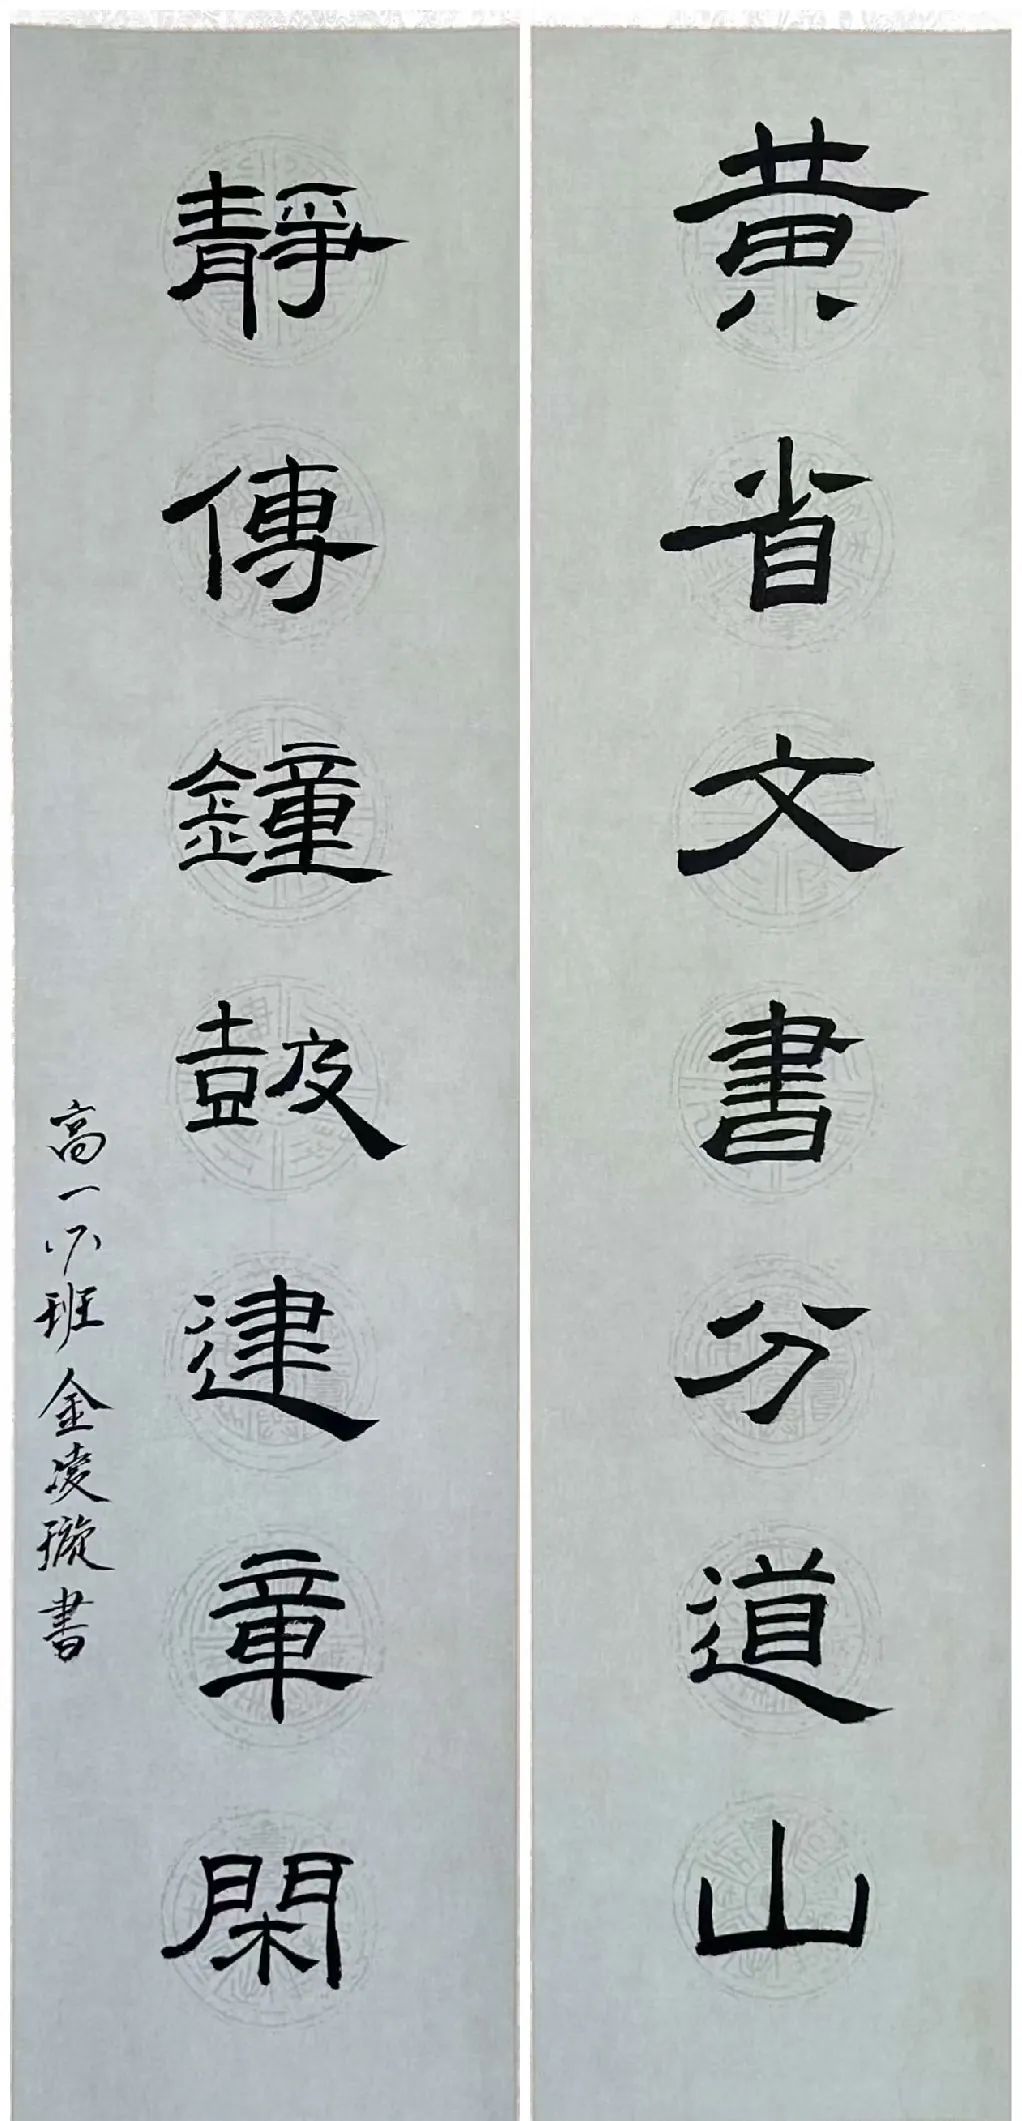 黄省文書分道山
靜傳鐘鼓建章閑
高一六班金凌璇書